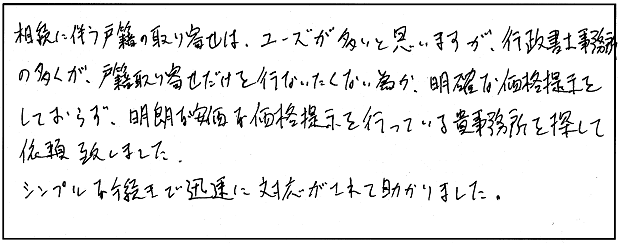 相続に伴う戸籍の取り寄せは、ユーズが多いと思いますが、行政書士事務所
の多くが、戸籍取り寄せだけを行ないたくない為か、明確な価格提示を
しておらず、明朗が安価な価格提示を行っている貴事務所を探して
依頼致しました。
シンプルな手続きで迅速に対応がされて助かりました。